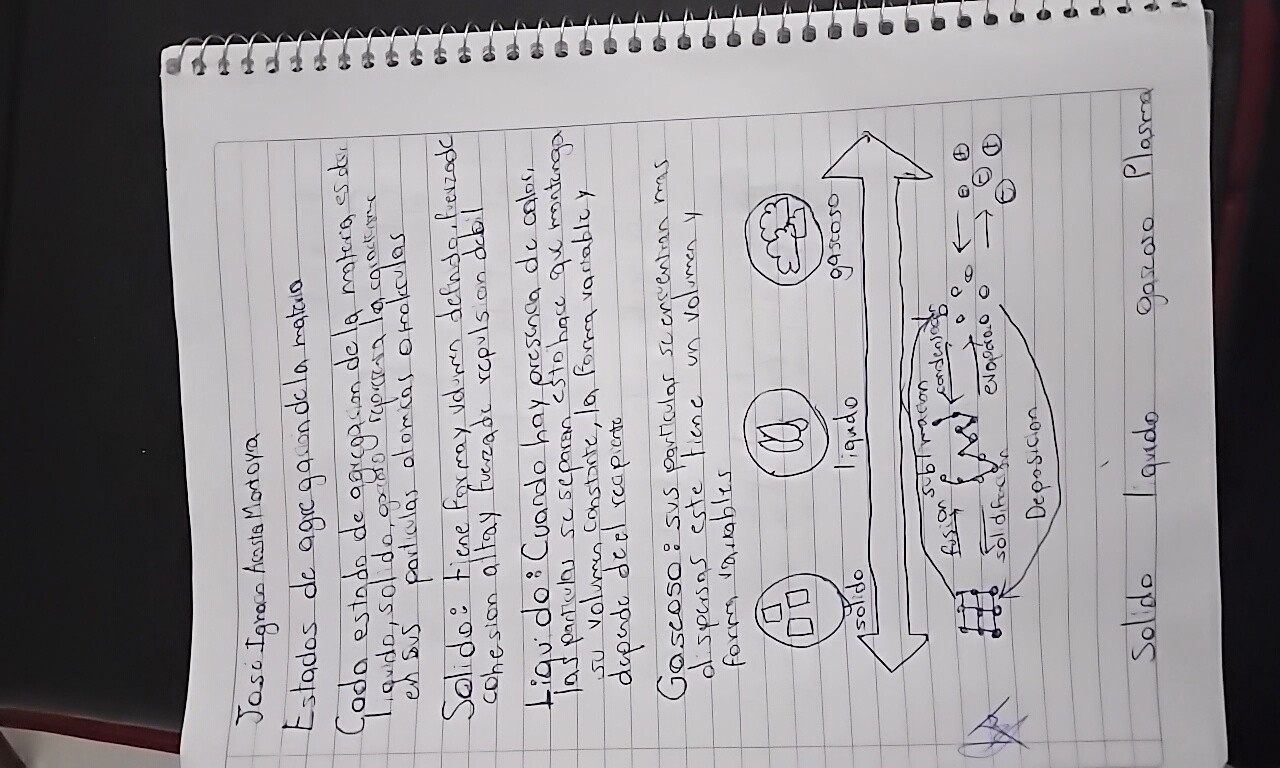 José Ignacio Acosta Montoya
Estados de agregacion de la materia
Cada estado de agregacion de la materia, es dei
liquido, solido, gaseoso representa la
en sus particulas atomicas o moleculas
Solido: tiene forma y volumen definido, fuerza de
cohesion alta y fuerza de repulsion debil
Liquido: Cuando hay presencia de calor,
las particulas se separan esto hace que mantenga
su volumen constante, la forma variable y
depende de el recipiente
Gaseoso: sus particular se encuentran mas
dispersas este tiene un volumen y
forma variables
solido liqudo gaseoso
sublimacion
fusion condensacion
solidificacion evaporas
Deposicion
Solido liqudo gaseoso Plasma